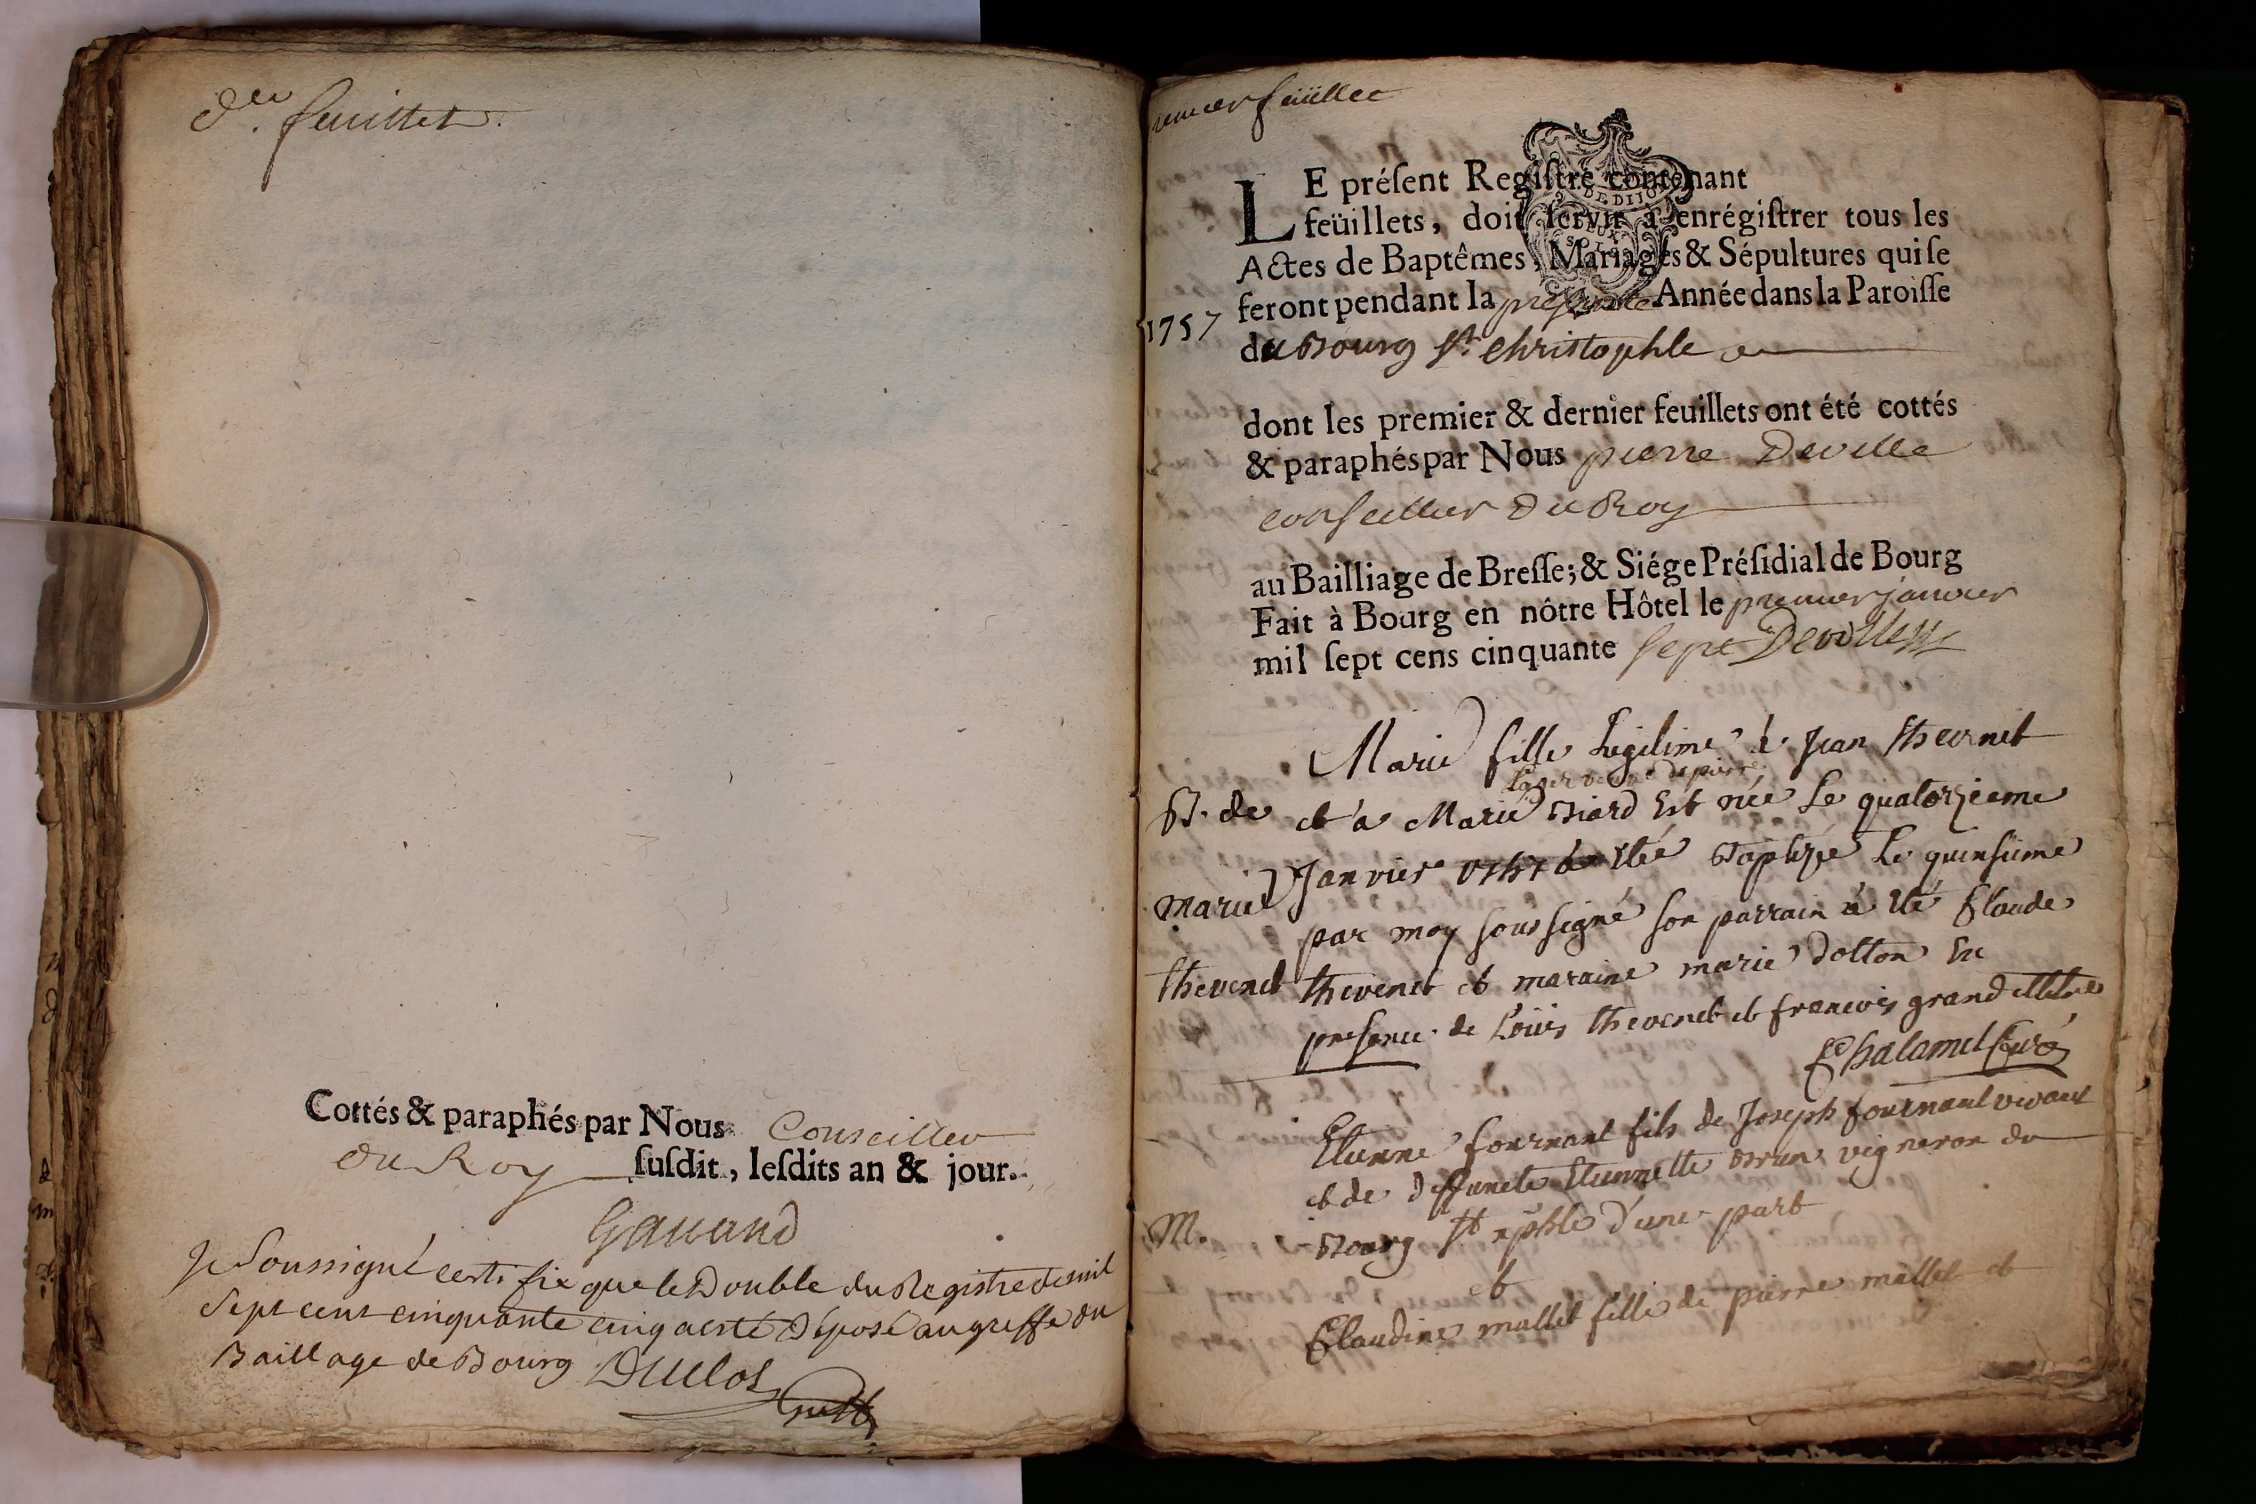 der. feuillet.
Cottés & paraphés par Nous Conseiller
du Roy suſdit, leſdits an & jour.
Gauand
Je Soussigné certifie que le Double du Registre de mil
Sept cent cinquante cinq a esté déposé au greffe du
Baillage de Bourg Duclos
premier feüillet
LE préſent Regiſtre contenant
feüillets, doit ſervir à enrégiſtrer tous les
Actes de Baptêmes, Mariages & Sépultures qui ſe
feront pendant la présente Année dans la Paroiſſe
1757
du Bourg St. Christophle
dont les premier & dernier feuillets ont été cottés
& paraphés par Nous pierre Deville
conseiller du Roy
au Bailliage de Breſſe; & Siége Préſidial de Bourg
Fait à Bourg en nôtre Hôtel le premier janvier
mil ſept cens cinquante sept Deville
Marie fille Legitime à Jean thevenet
B. de
et a Marie Biard Est née Le quatorzieme
Janvier 1757 a Eté Baptizée Le quinsieme
marie
par moy soussigné son parrain à Eté Claude
thevenet
thevenet et maraine marie dotton En
presence de Loüis thevenet et francois grand
Chalamel Curé
Etienne fournant fils de Joseph fournant vivant
et de deffuncte Etiennette Brun vigneron du
M.
Bourg St xphle d'une part
et
Claudine mallet fille de pierre mallet et